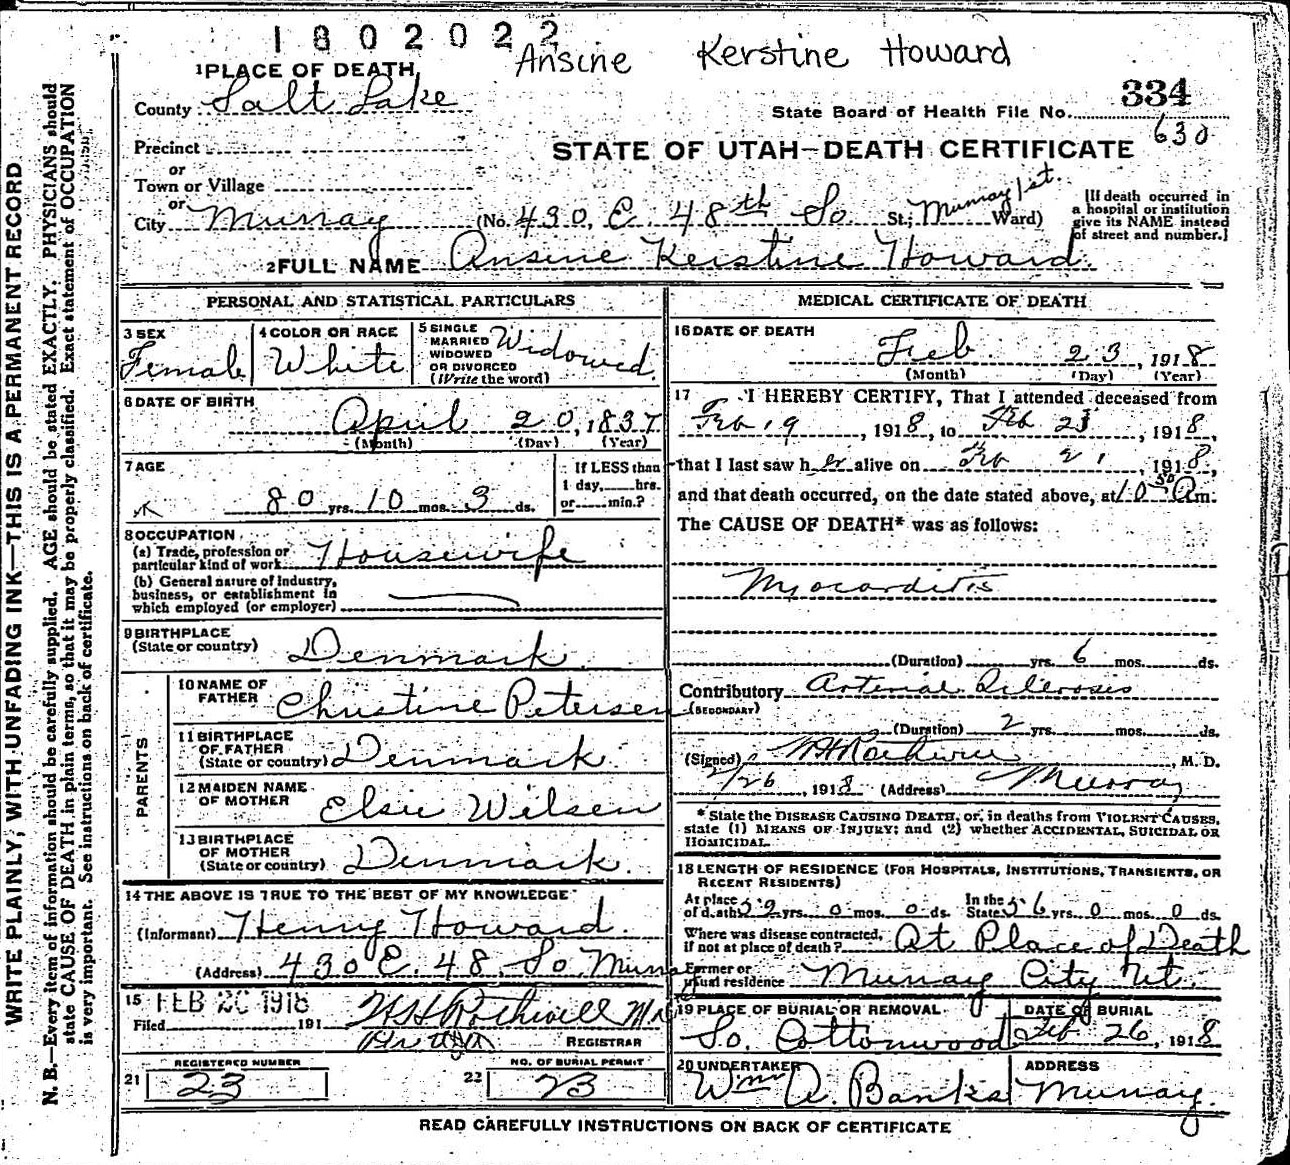 1802022
Ansine Kerstine Howard
1 PLACE OF DEATH
County Salt Lake
State Board of Health File No. 334
630
Precinct
or
Town or Village
or
City Murray
STATE OF UTAH—DEATH CERTIFICATE
(No. 430, E. 48th So. St.; Murray 1st. Ward)
[If death occurred in
a hospital or institution
give its NAME instead
of street and number.]
2 FULL NAME Ansine Kerstine Howard.
PERSONAL AND STATISTICAL PARTICULARS
3 SEX Female
4 COLOR OR RACE White
5 SINGLE
MARRIED
WIDOWED
OR DIVORCED
(Write the word) Widowed.
6 DATE OF BIRTH
April 20, 1837
(Month) (Day) (Year)
7 AGE
80 yrs. 10 mos. 3 ds.
If LESS than
1 day, hrs.
or min.?
8 OCCUPATION
(a) Trade, profession or
particular kind of work Housewife
(b) General nature of industry,
business, or establishment in
which employed (or employer)
9 BIRTHPLACE
(State or country) Denmark.
PARENTS
10 NAME OF
FATHER Christine Petersen
11 BIRTHPLACE
OF FATHER
(State or country) Denmark.
12 MAIDEN NAME
OF MOTHER Elsie Wilsen
13 BIRTHPLACE
OF MOTHER
(State or country) Denmark.
14 THE ABOVE IS TRUE TO THE BEST OF MY KNOWLEDGE
(Informant) Henry Howard.
(Address) 430 E. 48 So. Murray
15 FEB 26 1918
Filed 191
H H Rothwell
REGISTRAR
REGISTERED NUMBER
21 23
NO. OF BURIAL PERMIT
22 23
MEDICAL CERTIFICATE OF DEATH
16 DATE OF DEATH
Feb. 23, 1918
(Month) (Day) (Year)
17 I HEREBY CERTIFY, That I attended deceased from
Feb 19, 1918, to Feb 23, 1918,
that I last saw her alive on Feb 21, 1918,
and that death occurred, on the date stated above, at 10 50 Am.
The CAUSE OF DEATH* was as follows:
Myocarditis
(Duration) yrs. 6 mos. ds.
Contributory Arterial Sclerosis
(SECONDARY)
(Duration) 2 yrs. mos. ds.
(Signed) H H Rothwell, M. D.
2/26, 1918 (Address) Murray
* State the DISEASE CAUSING DEATH, or, in deaths from VIOLENT CAUSES,
state (1) MEANS OF INJURY; and (2) whether ACCIDENTAL, SUICIDAL OR
HOMICIDAL.
18 LENGTH OF RESIDENCE (FOR HOSPITALS, INSTITUTIONS, TRANSIENTS, OR
RECENT RESIDENTS)
At place
of death yrs. 0 mos. 0 ds.
In the
State 56 yrs. 0 mos. 0 ds.
Where was disease contracted,
if not at place of death? At Place of Death
Former or
usual residence Murray City Ut.
19 PLACE OF BURIAL OR REMOVAL
So. Cottonwood
DATE OF BURIAL
Feb 26, 1918
20 UNDERTAKER
Wm A. Banks
ADDRESS
Murray.
READ CAREFULLY INSTRUCTIONS ON BACK OF CERTIFICATE
WRITE PLAINLY, WITH UNFADING INK—THIS IS A PERMANENT RECORD
N. B.—Every item of information should be carefully supplied. AGE should be stated EXACTLY. PHYSICIANS should
state CAUSE OF DEATH in plain terms, so that it may be properly classified. Exact statement of OCCUPATION
is very important. See instructions on back of certificate.